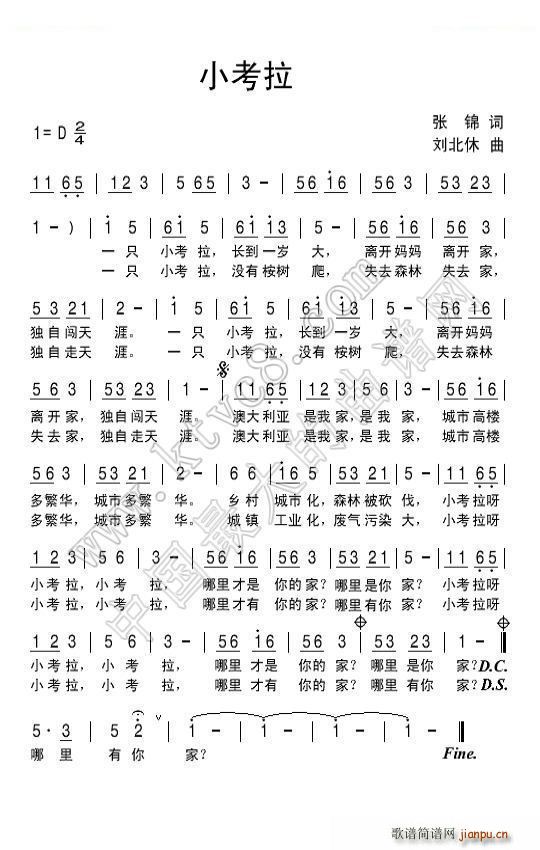 小考拉
1= D 2/4
张 锦 词
刘北休 曲
1 1 6 5 | 1 2 3 | 5 6 5 | 3 - | 5 6 1 6 | 5 6 3 | 5 3 2 3 |
1 - ) | 1 5 | 6 1 5 | 6 1 1 3 | 5 - | 5 6 1 6 | 5 6 3 |
一 只 小考 拉, 长到 一岁 大, 离开 妈妈 离开 家,
一 只 小考 拉, 没有 桉树 爬, 失去 森林 失去 家,
5 3 2 1 | 2 - | 1 5 | 6 1 5 | 6 1 1 3 | 5 - | 5 6 1 6 |
独自 闯天 涯。 一 只 小考 拉, 长到 一岁 大, 离开 妈妈
独自 走天 涯。 一 只 小考 拉, 没有 桉树 爬, 失去 森林
5 6 3 | 5 3 2 3 | 1 - | 1 1 6 5 | 1 2 3 | 5 6 5 | 3 1 6 |
离开 家, 独自 闯天 涯。 澳大 利亚 是我 家, 是我 家, 城市 高楼
失去 家, 独自 走天 涯。 澳大 利亚 是我 家, 是我 家, 城市 高楼
5 6 3 | 5 3 2 1 | 2 - | 5 6 1 6 | 5 6 3 | 5 3 2 1 | 2 - | 1 1 6 5 |
多繁 华, 城市 多繁 华。 乡村 城市 化, 森林 被砍 伐, 小考 拉呀
多繁 华, 城市 多繁 华。 城镇 工业 化, 废气 污染 大, 小考 拉呀
1 2 3 | 5 6 | 3 - | 5 6 1 6 | 5 6 3 | 5 3 2 1 | 2 - | 1 1 6 5 |
小考 拉, 小 考 拉, 哪里 才是 你的 家? 哪里 是你 家? 小考 拉呀
小考 拉, 小 考 拉, 哪里 才有 你的 家? 哪里 有你 家? 小考 拉呀
1 2 3 | 5 6 5 | 3 - | 5 6 1 6 | 5 6 3 | 5 3 2 3 | 1 - ||
小考 拉, 小 考 拉, 哪里 才是 你的 家? 哪里 是你 家? D.C.
小考 拉, 小 考 拉, 哪里 才有 你的 家? 哪里 有你 家? D.S.
5 · 3 | 5 2 | 1 - | 1 - | 1 - | 1 - ||
哪 里 有 你 家? Fine.
www.ktvc8.com
中国最大的曲谱网
歌谱简谱网
jianpu.cn